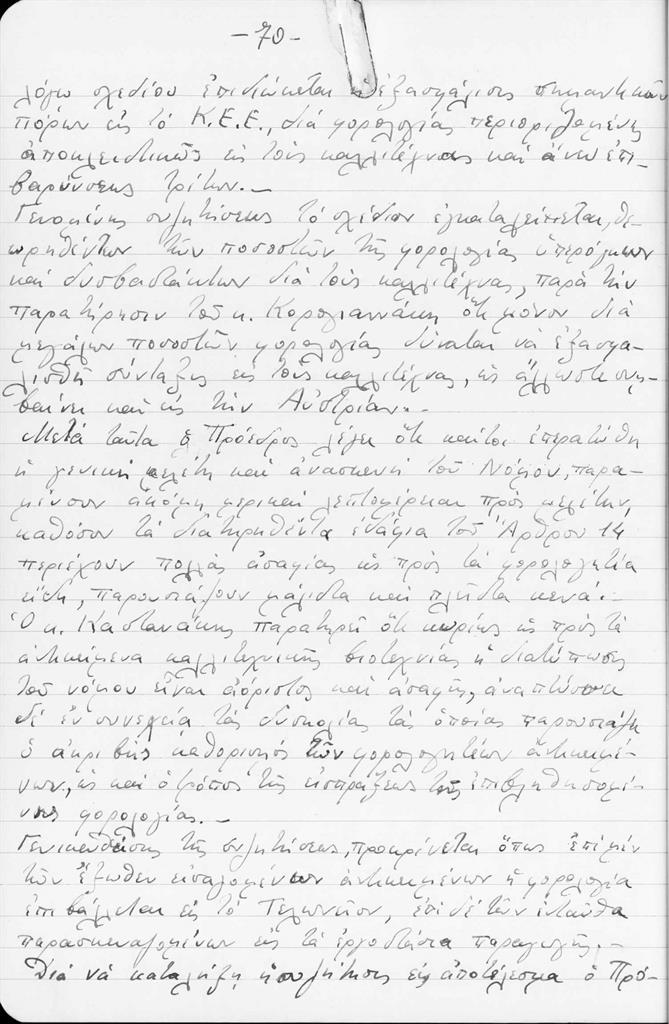 -70-
λόγω σχεδίου ἐπιδιώκεται ἡ ἐξασφάλισις σημαντικῶν
πόρων εἰς τό Κ.Ε.Ε., διά φορολογίας περιοριζομένης
ἀποκλειστικῶς εἰς τούς καλλιτέχνας καί ἄνευ ἐπι-
βαρύνσεως τρίτων.-
Γενομένης συζητήσεως τό σχέδιον ἐγκαταλείπεται, θε-
ωρηθέντων τῶν ποσοστῶν τῆς φορολογίας ὑπερόγκων
καί δυσβαστάκτων διά τούς καλλιτέχνας, παρά τήν
παρατήρησιν τοῦ κ. Κορογιαννάκη ὅτι μόνον διά
μεγάλων ποσοστῶν φορολογίας δύναται νά ἐξασφα-
λισθῇ σύνταξις εἰς τούς καλλιτέχνας, ὡς ἄλλωστε συμ-
βαίνει καί εἰς τήν Αὐστρίαν.-
Μετά ταῦτα ὁ Πρόεδρος λέγει ὅτι καίτοι ἐπερατώθη
ἡ γενική μελέτη καί ἀνασκευή τοῦ Νόμου, παρα-
μένουν ἀκόμη μερικαί λεπτομέρειαι πρός μελέτην,
καθόσον τά διατηρηθέντα ἐδάφια τοῦ Ἄρθρου 14
περιέχουν πολλάς ἀσαφείας ὡς πρός τά φορολογητέα
εἴδη, παρουσιάζουν μάλιστα καί πλεῖστα κενά.-
Ὁ κ. Καστανάκης παρατηρεῖ ὅτι κυρίως ὡς πρός τά
ἀντικείμενα καλλιτεχνικῆς βιοτεχνίας ἡ διατύπωσις
τοῦ νόμου εἶναι ἀόριστος καί ἀσαφής, ἀναπτύσσει
δέ ἐν συνεχεία τάς δυσκολίας τάς ὁποίας παρουσιάζει
ὁ ἀκριβής καθορισμός τῶν φορολογητέων ἀντικειμέ-
νων, ὡς καί ὁ τρόπος τῆς εἰσπράξεως τῆς ἐπιβληθησομέ-
νης φορολογίας.-
Γενικευθείσης τῆς συζητήσεως, προκρίνεται ὅπως ἐπί μέν
τῶν ἔξωθεν εἰσαγομένων ἀντικειμένων ἡ φορολογία
ἐπιβάλλεται εἰς τό Τελωνεῖον, ἐπί δέ τῶν ἐνταῦθα
παρασκευαζομένων εἰς τά ἐργοστάσια παραγωγῆς.-
Διά νά καταλήξῃ ἡ συζήτησις εἰς ἀποτέλεσμα ὁ Πρό-